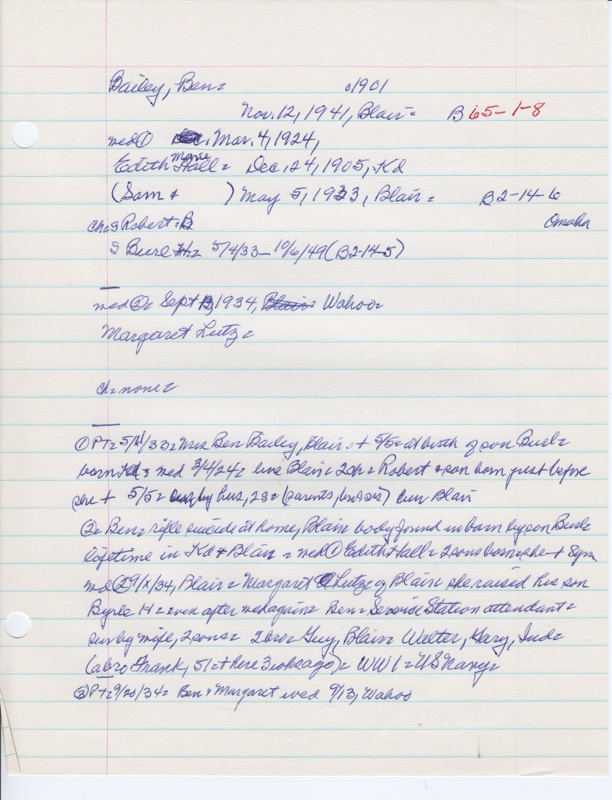 Bailey, Ben= c1901
Nov. 12, 1941, Blair= B 65-1-8
med ① Mar. 4, 1924,
Edith Marie Hall= Dec. 24, 1905, Kd
(Sam + ) May 5, 1933, Blair= B2-14-6
ch= S Robert= Omaha
S Burl H= 5/4/33-10/6/49 (B2-14-5)
med ②= Sept 13, 1934, Blair= Wahoo=
Margaret Lutz=
ch= none=
① PT= 5/11/33= Mrs Ben Bailey, Blair= + 5/5= at birth of son Burl=
born Kd= med 3/4/24= live Blair= 2ch= Robert + son born just before
she + 5/5= surv by hus, 2s= (parents, bro, sis) bur Blair
②= Ben= rifle suicide at home, Blair body found in barn by son Burl=
lifetime in Kd + Blair= med ① Edith Hall= 2 sons born= she + 8 yrs
med ② 9/X/34, Blair= Margaret Lutz of Blair she raised his son
Byrle H= even after med again= Ben= Service Station attendant=
surv by wife, 2 sons= 2 bro= Guy, Blair= Walter, Gary, Ind=
(a bro Frank, 51, + here 3 wks ago)= WW1= US Navy=
③ PT= 9/20/34= Ben + Margaret wed 9/13, Wahoo